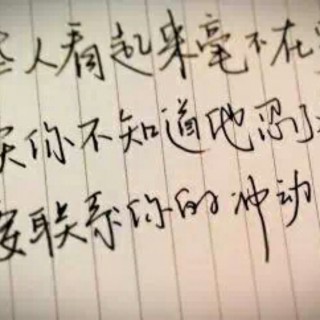 些人看起来毫不在
实你不知道他忍了
度联系你的冲动